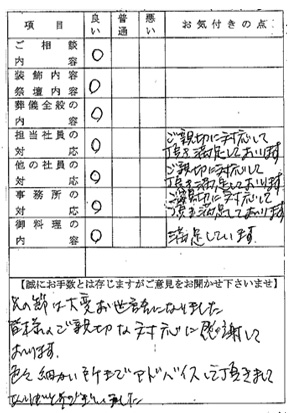 項目 良い 普通 悪い お気付きの点
ご相談
内容 ○
装飾内容
祭壇内容 ○
葬儀全般の
内容 ○
担当社員の
対応 ○ ご親切に対応して
頂き満足しております
他の社員の
対応 ○ ご親切に対応して
頂き満足しております
事務所の
対応 ○ ご親切に対応して
頂き満足しております
御料理の
内容 ○ 満足しています。
【誠にお手数とは存じますがご意見をお聞かせ下さいませ】
の節は大変お世話になりました
皆様のご親切な対応に感謝して
おります。
色々細かい事までアドバイスして頂きまして
ありがとうございました